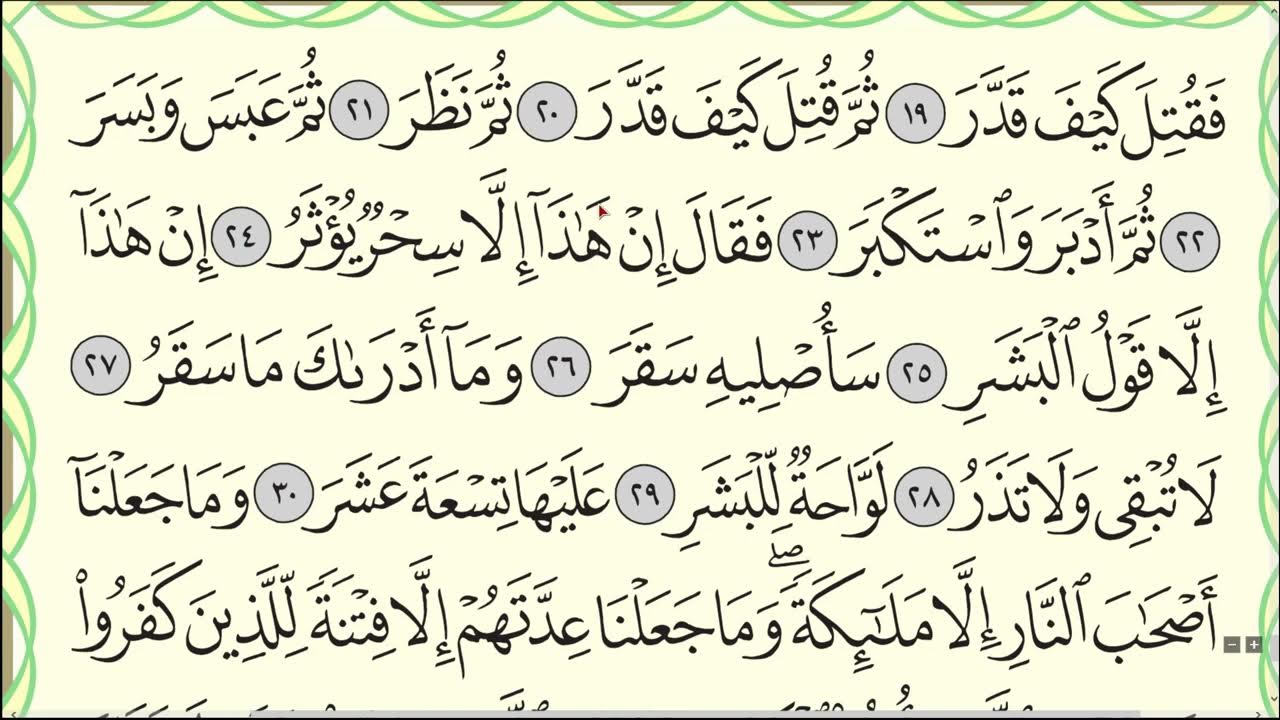 فَقُتِلَ كَيۡفَ قَدَّرَ ١٩ ثُمَّ قُتِلَ كَيۡفَ قَدَّرَ ٢٠ ثُمَّ نَظَرَ ٢١ ثُمَّ عَبَسَ وَبَسَرَ
٢٢ ثُمَّ أَدۡبَرَ وَٱسۡتَكۡبَرَ ٢٣ فَقَالَ إِنۡ هَٰذَآ إِلَّا سِحۡرٞ يُؤۡثَرُ ٢٤ إِنۡ هَٰذَآ
إِلَّا قَوۡلُ ٱلۡبَشَرِ ٢٥ سَأُصۡلِيهِ سَقَرَ ٢٦ وَمَآ أَدۡرَىٰكَ مَا سَقَرُ ٢٧
لَا تُبۡقِي وَلَا تَذَرُ ٢٨ لَوَّاحَةٞ لِّلۡبَشَرِ ٢٩ عَلَيۡهَا تِسۡعَةَ عَشَرَ ٣٠ وَمَا جَعَلۡنَآ
أَصۡحَٰبَ ٱلنَّارِ إِلَّا مَلَٰٓئِكَةٗۖ وَمَا جَعَلۡنَا عِدَّتَهُمۡ إِلَّا فِتۡنَةٗ لِّلَّذِينَ كَفَرُواْ